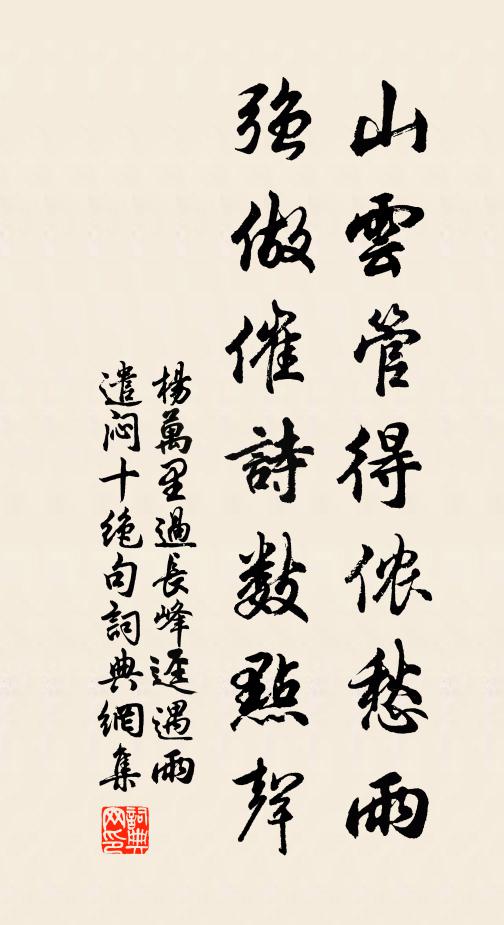 山雲管得侬愁雨
強做催詩數點聲
楊萬里過長峰逕遇雨
遣闷十绝句詞典網集
詞典网印